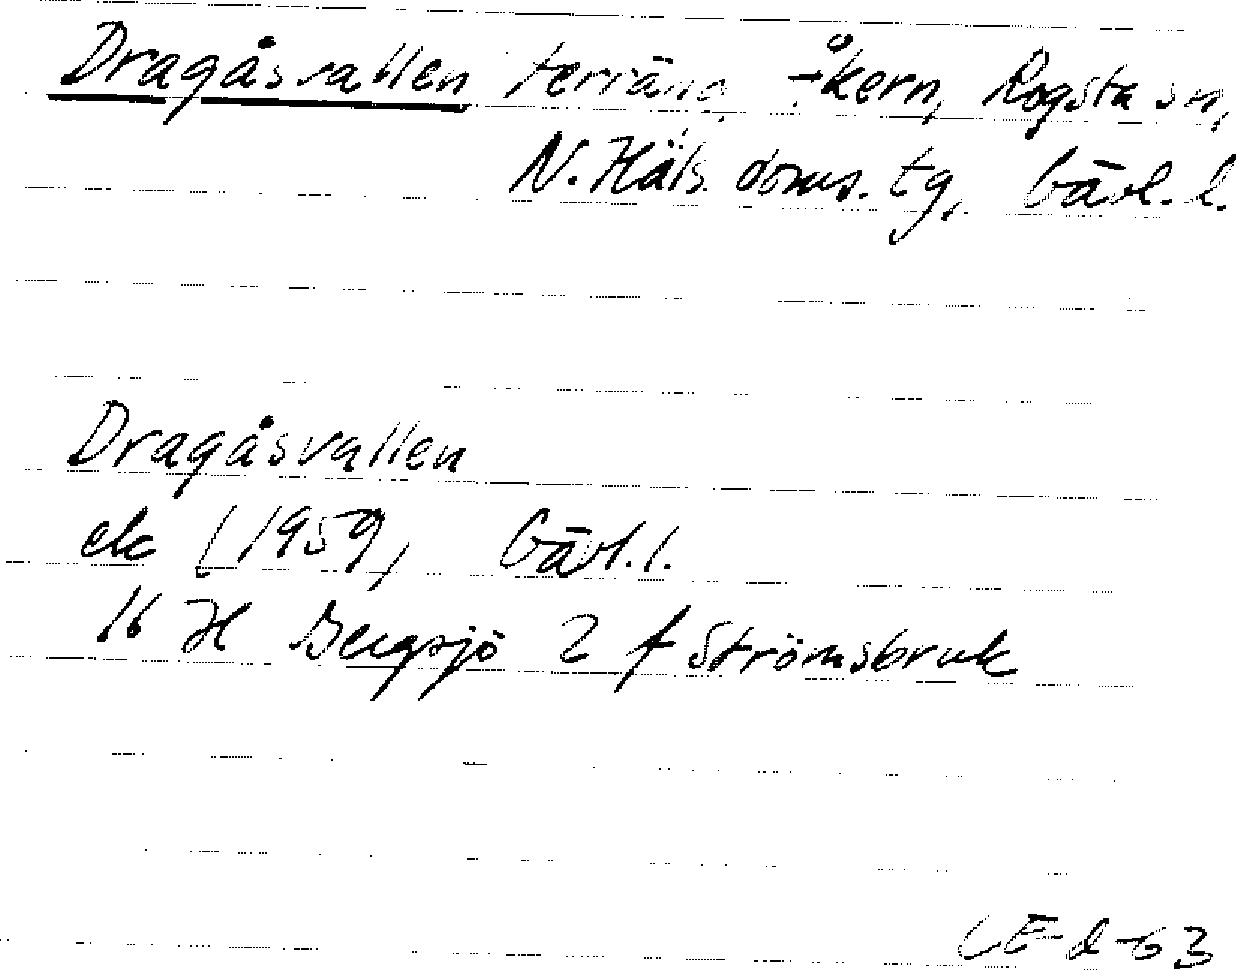 Dragåsvallen terräng, Åkern, Rogsta sn,
N. Häls. doms. tg, Gävl. l.
Dragåsvallen
ek (1959) Gävl. l.
16 H Bergsjö 2 f Strömsbruk